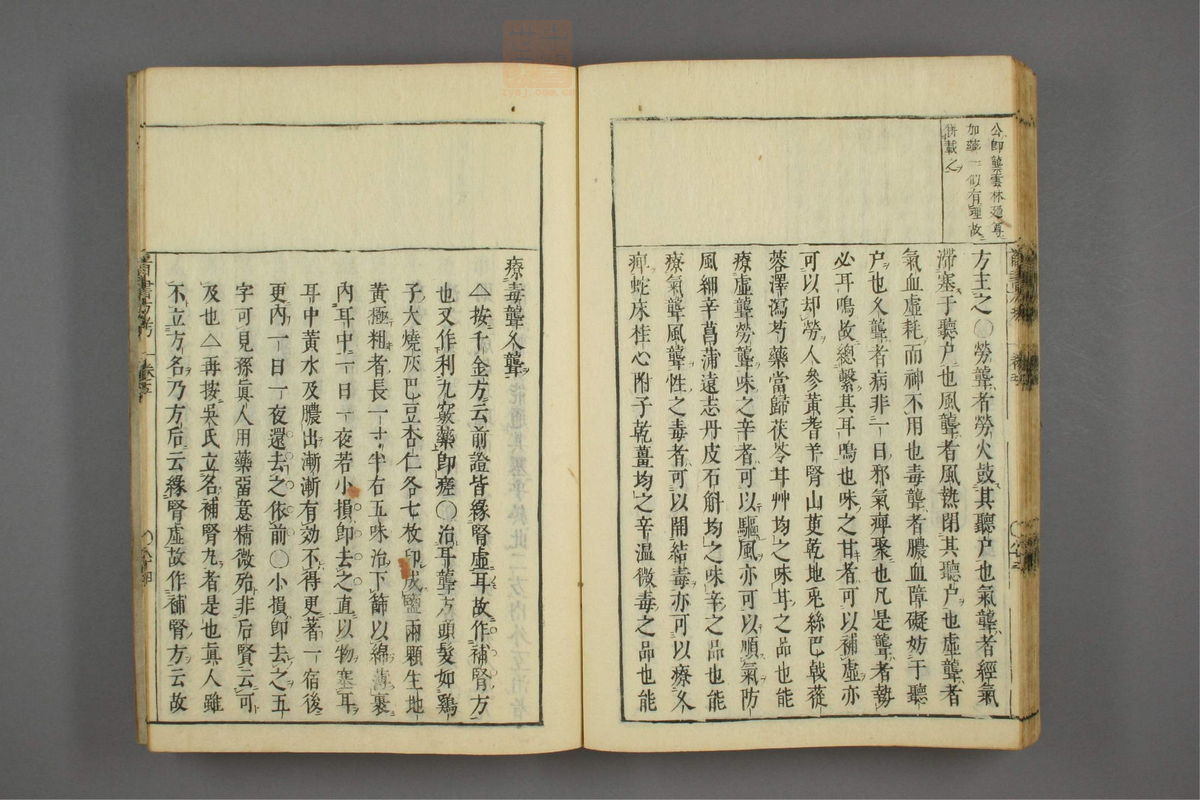 公師龔雲林廼尊
加藥一似有理故
併載之
方主之○勞聾者勞火鼓其聽户也氣聾者經氣
滯塞于聽户也風聾者風熱閉其聽户也虛聾者
氣血虛耗而神不用也毒聾者膿血障礙妨于聽
户也久聾者病非一日邪氣痺聚也凡是聾者勢
必耳鳴故總繫其耳鳴也味之甘者可以補虛亦
可以却勞人參黃耆羊腎山萸乾地兎絲巴戟蓯
蓉澤瀉芍藥當歸茯苓耳艸均之味耳之品也能
療虛聾勞聾味之辛者可以驅風亦可以順氣防
風細辛菖蒲遠志丹皮石斛均之味辛之品也能
療氣聾風聾性之毒者可以開結毒亦可以療久
痺蛇床桂心附子乾薑均之辛温微毒之品也能
療毒聾久聾
△按千金方云前證皆緣腎虛耳故作補腎方
也又作利九竅藥卽瘥○治耳聾方頭髮如鷄
子大燒灰巴豆杏仁各七枚印成鹽兩顆生地
黃極粗者長一寸半右五味治下篩以綿薄裹
內耳中一日一夜若小損卽去之直以物塞耳
耳中黃水及膿出漸漸有効不得更著一宿後
更內一日一夜還去之依前○小損卽去之五
字可見孫眞人用藥畱意精微殆非后賢云可
及也△再按吳氏立名補腎九者是也眞人雖
不立方名乃方后云緣腎虛故作補腎方云故